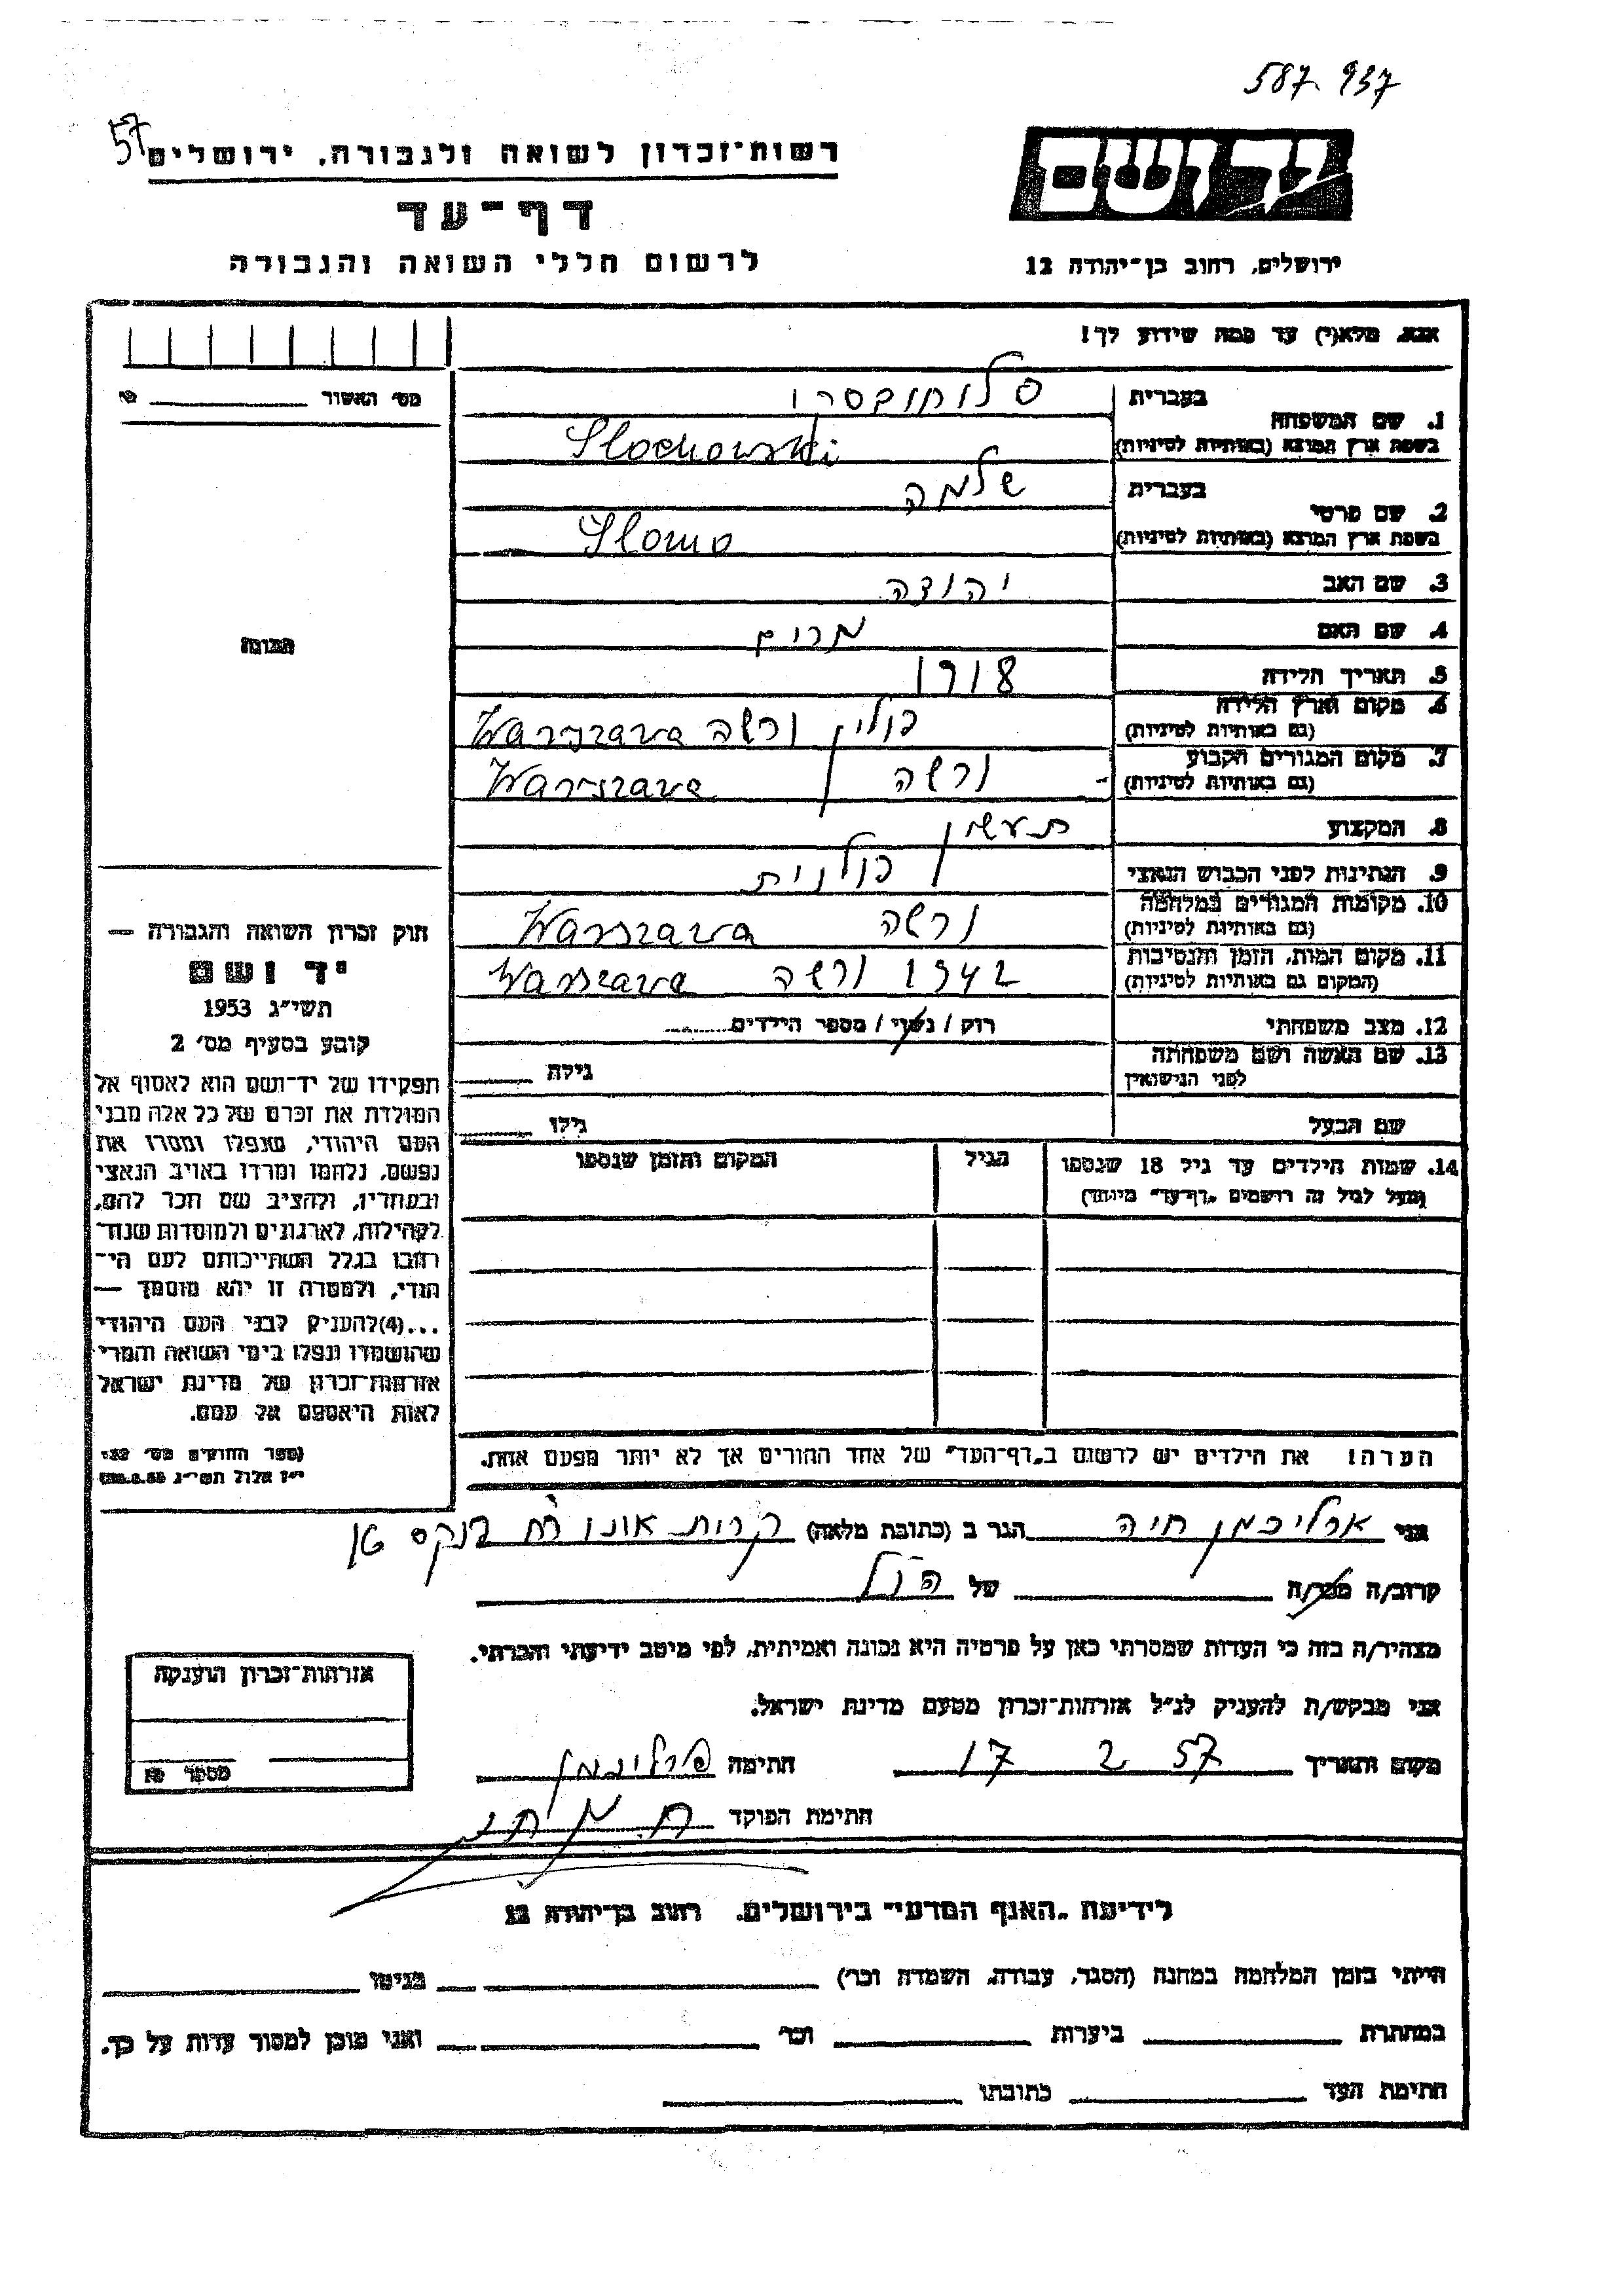 587.937
57
רשות־זכרון לשואה ולגבורה, ירושלים
יד ושם
דף־עד
לרשום חללי השואה והגבורה
ירושלים, רחוב בן־יהודה 12
אנא, מלא(י) עד כמה שידוע לך!
מס' האשור
1. שם המשפחה בעברית סלוחובסקי
בשפת ארץ המוצא (באותיות לטיניות) Slochowski
2. שם פרטי בעברית שלמה
בשפת ארץ המוצא (באותיות לטיניות) Slomo
3. שם האב יהודה
4. שם האם מרים
5. תאריך הלידה 1918
6. מקום וארץ הלידה (גם באותיות לטיניות) פולין ורשה Warszawa
7. מקום המגורים הקבוע (גם באותיות לטיניות) ורשה Warszawa
8. המקצוע תעשין
9. הנתינות לפני הכבוש הנאצי פולנית
10. מקומות המגורים במלחמה (גם באותיות לטיניות) ורשה Warszawa
11. מקום המות, הזמן והנסיבות (המקום גם באותיות לטיניות) 1942 ורשה Warszawa
12. מצב משפחתי רוק / נשוי / מספר הילדים
13. שם האשה ושם משפחתה לפני הנישואין גילה
שם הבעל גילו
14. שמות הילדים עד גיל 18 שנספו הגיל המקום והזמן שנספו
(מעל לגיל זה רושמים "דף־עד" מיוחד)
הערה! את הילדים יש לרשום ב"דף־העד" של אחד ההורים אך לא יותר מפעם אחת.
התמונה
חוק זכרון השואה והגבורה —
יד ושם
תשי"ג 1953
קובע בסעיף מס' 2
תפקידו של יד־ושם הוא לאסוף אל
המולדת את זכרם של כל אלה מבני
העם היהודי, שנפלו ומסרו את
נפשם, נלחמו ומרדו באויב הנאצי
ובעוזריו, ולהציב שם וזכר להם,
לקהילות, לארגונים ולמוסדות שנח־
רבו בגלל השתייכותם לעם הי־
הודי, ולמטרה זו יהא מוסמך —
...(4)להעניק לבני העם היהודי
שהושמדו ונפלו בימי השואה והמרי
אזרחות־זכרון של מדינת ישראל
לאות היאספם אל עמם.
(ספר החוקים מס' 132
י"ז אלול תשי"ג
אני פרליכמן חיה הגר ב (כתובת מלאה) קרית אונו
קרוב/ה מכר/ה של הנ"ל
מצהיר/ה בזה כי העדות שמסרתי כאן על פרטיה היא נכונה ואמיתית, לפי מיטב ידיעתי והכרתי.
אני מבקש/ת להעניק לנ"ל אזרחות־זכרון מטעם מדינת ישראל.
מקום ותאריך 17 2 57 חתימה
חתימת הפוקד
אזרחות־זכרון הוענקה
מספר
לידיעת "האגף המדעי" בירושלים. רחוב בן־יהודה 12
הייתי בזמן המלחמה במחנה (הסגר, עבודה, השמדה וכו') בגיטו
במחתרת ביערות וכו' ואני מוכן למסור עדות על כך.
חתימת העד כתובתו